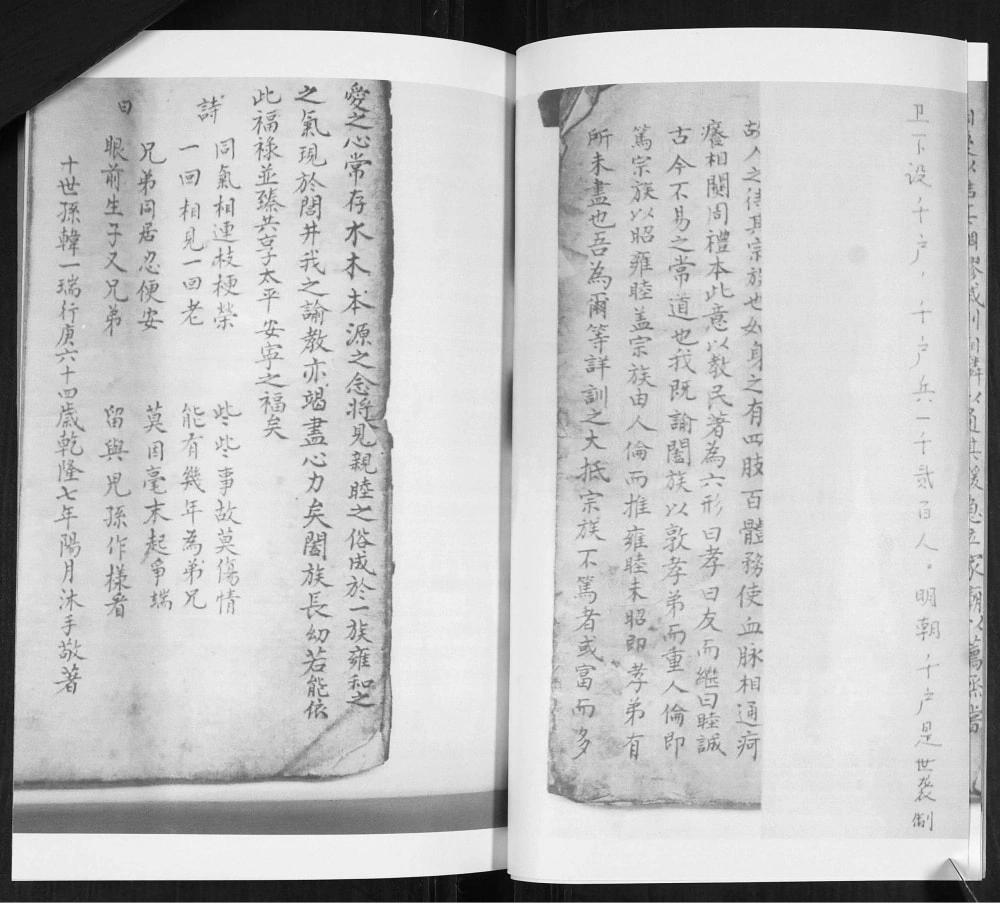 卫下设千户，千户兵一千贰百人。明朝千户是世袭制
故人之待其宗族也如身之有四肢百體務使血脉相通疴
癢相關周禮本此意以教民著為六形曰孝曰友而繼曰睦誠
古今不易之常道也我既諭闔族以敦孝弟而重人倫即
篤宗族以昭雍睦盖宗族由人倫而推雍睦未昭即孝弟有
所未盡也吾為爾等詳訓之大抵宗族不篤者或富而多
愛之心常存水木本源之念將見親睦之俗成於一族雍和之
之氣現於閭井我之諭教亦竭盡心力矣闔族長幼若能依
此福祿並臻共享太平安寧之福矣
詩曰
同氣相連枝梗榮 些些事故莫傷情
一回相見一回老 能有幾年為弟兄
兄弟同居忍便安 莫因毫末起爭端
眼前生子又兄弟 留與兒孫作樣看
十世孫韓一瑞行庚六十四歲乾隆七年陽月沐手敬著